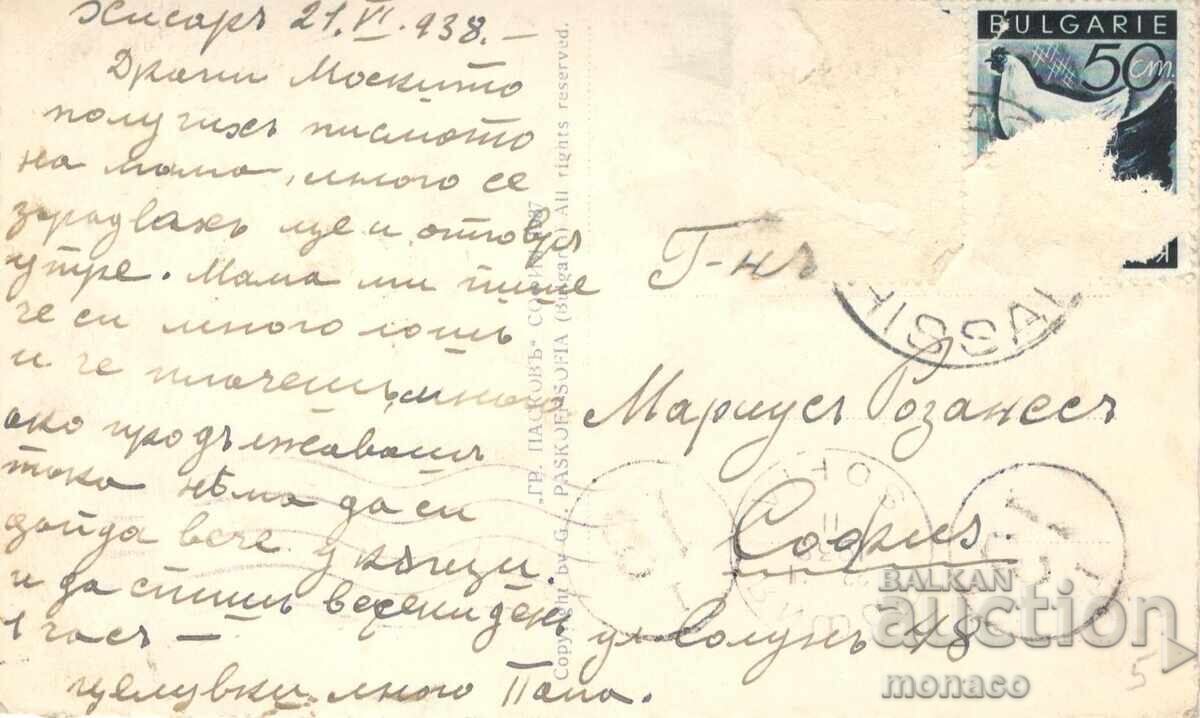 Хисаръ 21.VI.938.-
Драги Москито
получихъ писмото
на мама, много се
зарадвахъ ще и отговоря
утре. Мама ми пише
че си много лошъ
и че плачешъ, много
ако продължавашъ
така нѣма да си
дойда вече у кѫщи.
и да спишъ всеки день
1 часъ —
целувки много Папа.
"ГР. ПАСКОВЪ" СОФИЯ 1937
Copyright by G. PASKOFF SOFIA (Bulgarie) All rights reserved.
BULGARIE
50 cm.
HISSAR
Г-нъ
Мариусъ Розанесъ
София.
ул Солунъ 48
BALKAN
auction
monaco
5